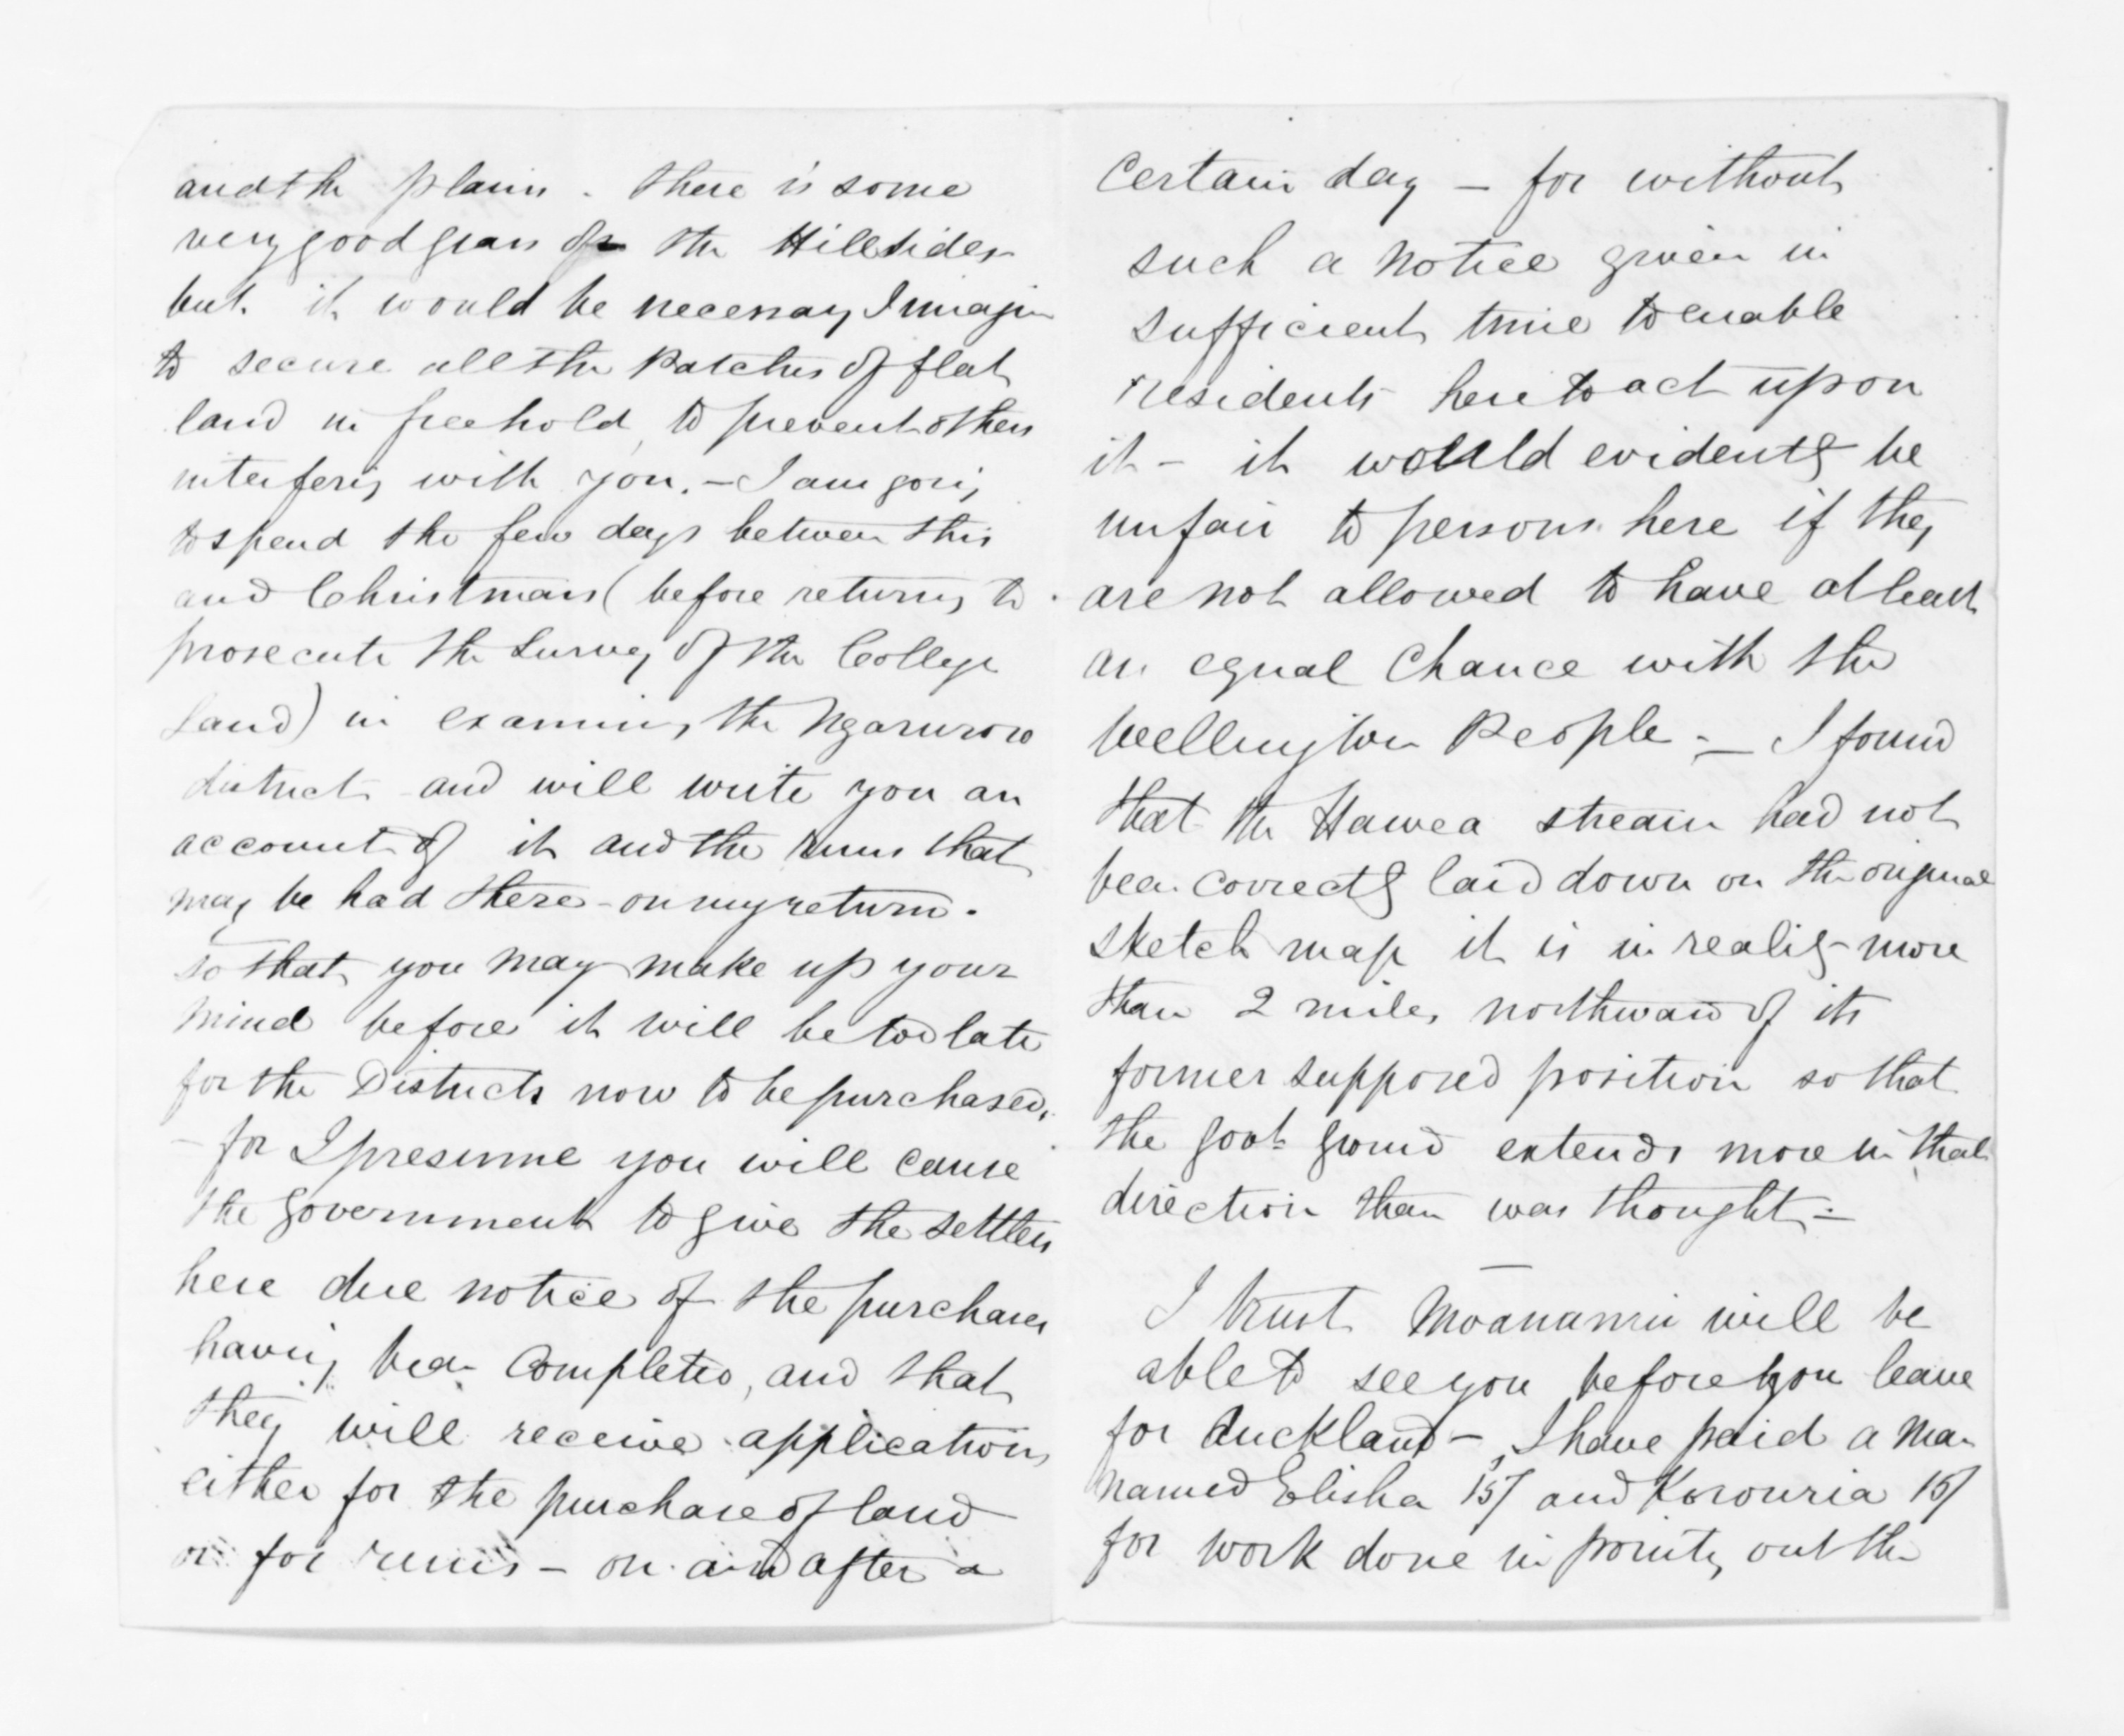 and the plain. there is some
very good grass on the Hillsides
but it would be necessary I imagine
to secure all the patches of flat
land in freehold, to prevent others
interfering with you. – I am going
to spend the few days between this
and Christmas (before returning to
prosecute the Survey of the College
Land) in examining the Ngaruroro
district and will write you an
account of it and the runs that
may be had there – on my return.
so that you may make up your
mind before it will be too late
for the Districts now to be purchased,
– for I presume you will cause
the Government to give the settlers
here due notice of the purchases
having been completed, and that
they will receive applications
either for the purchase of land
or for runs – on and after a
certain day – for without
such a notice given in
sufficient time to enable
residents here to act upon
it – it would evidently be
unfair to persons here if they
are not allowed to have at least
an equal chance with the
Wellington People. – I found
that the Hawea stream had not
been correctly laid down on the original
sketch map it is in reality more
than 2 miles northward of its
former supposed position so that
the govt ground extends more in that
direction than was thought –
I trust Moananui will be
able to see you before you leave
for Auckland – I have paid a man
named Elisha 15/ and Korouria 15/
for work done in pointing out the